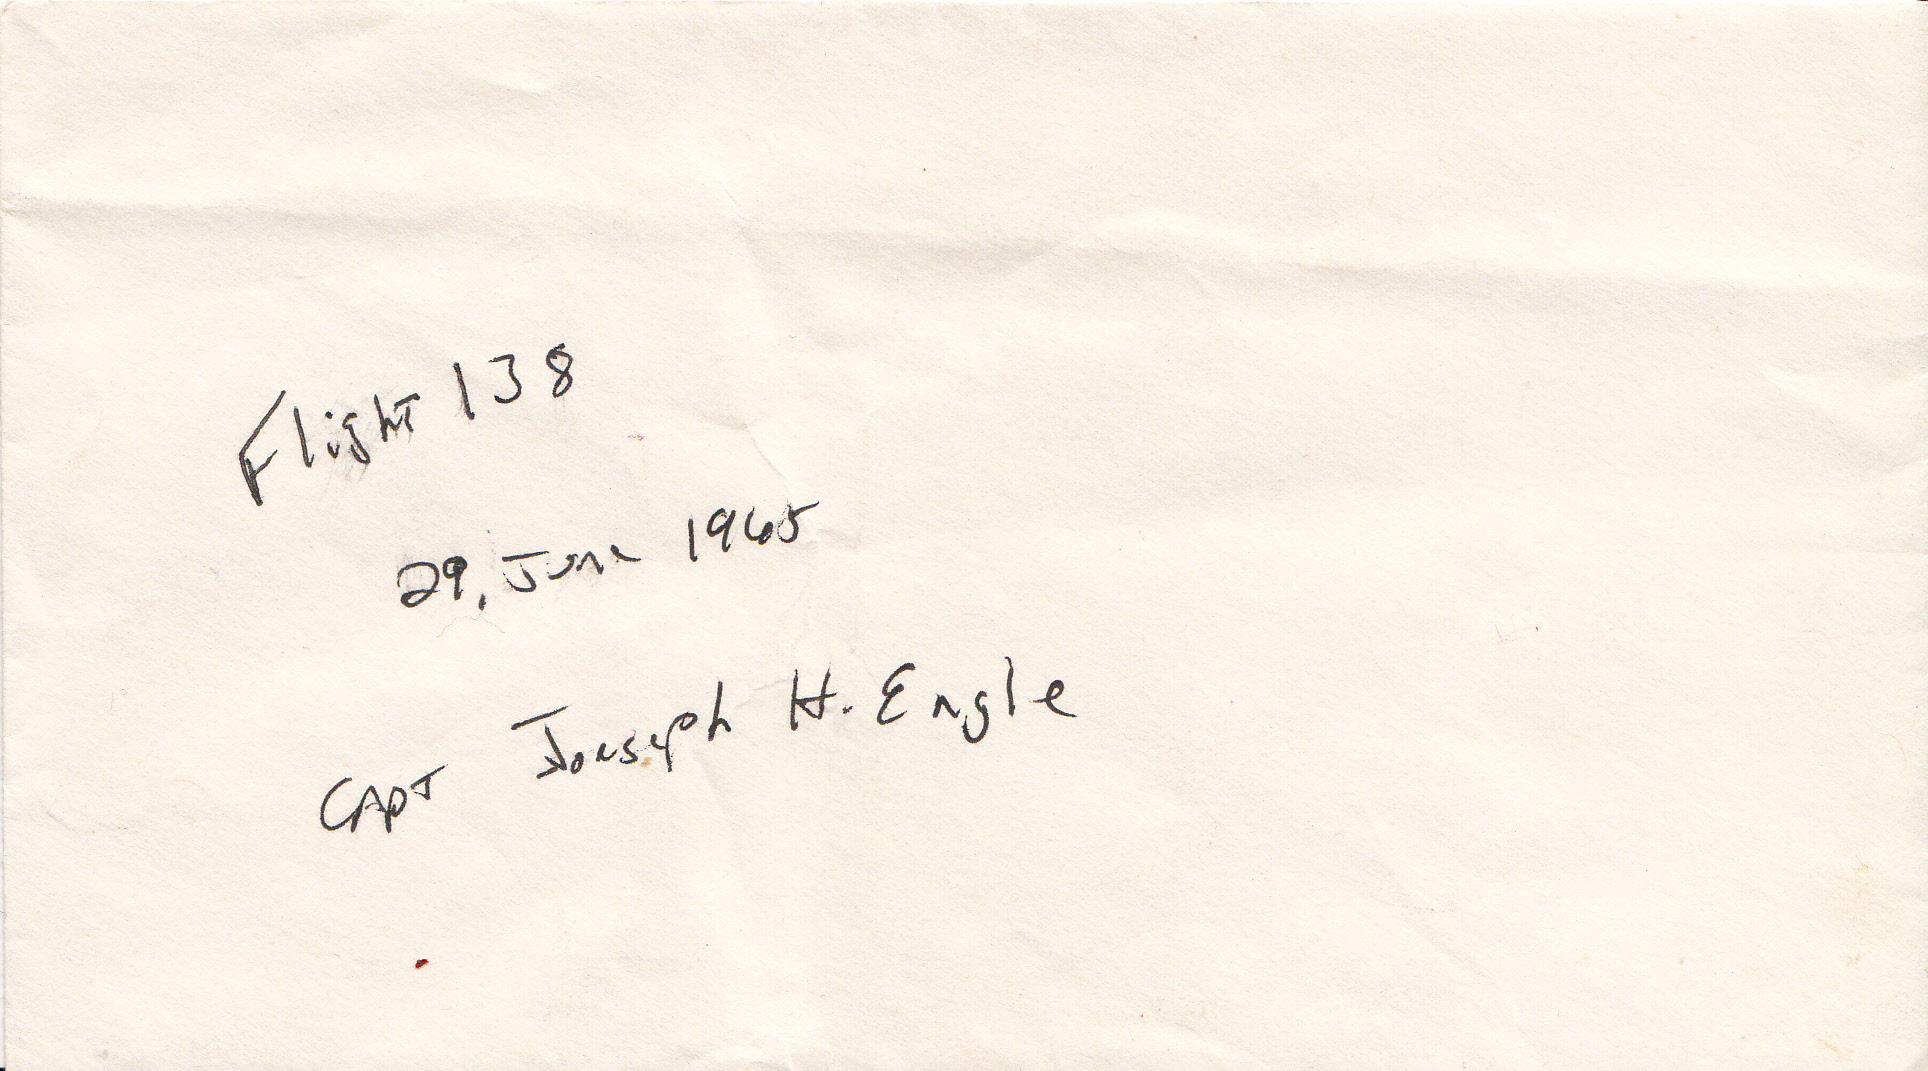 Flight 138
29, June 1965
CAPT Joeseph H. Engle